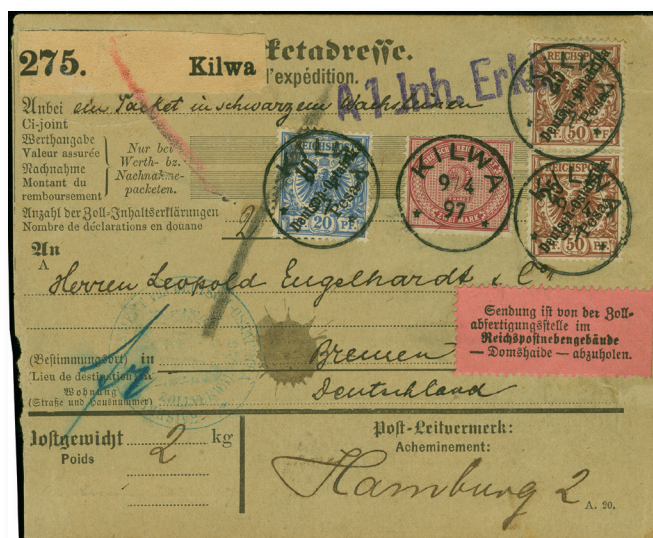 275. Kilwa
ketadresse.
l'expédition.
A 1 Inh. Erkl.
Anbei ein Packet in schwarzem Wachsleinen
Ci-joint
Werthangabe
Valeur assurée
Nachnahme
Montant du
remboursement
Nur bei
Werth- bz.
Nachnahme-
packeten.
Anzahl der Zoll-Inhaltserklärungen
Nombre de déclarations en douane
2
REICHSPOST
20 PF.
KILWA
9/4
97
ZWEI MARK
REICHSPOST
50 PF.
50 PF.
An
A
Herren Leopold Engelhardt & Co
Sendung ist von der Zoll-
abfertigungsstelle im
Reichspostnebengebäude
— Domshaide — abzuholen.
(Bestimmungsort) in Bremen
Lieu de destination
Wohnung
(Straße und Hausnummer)
Deutschland
Postgewicht 2 kg
Poids
Post-Leitvermerk:
Acheminement:
Hamburg 2
A. 20.